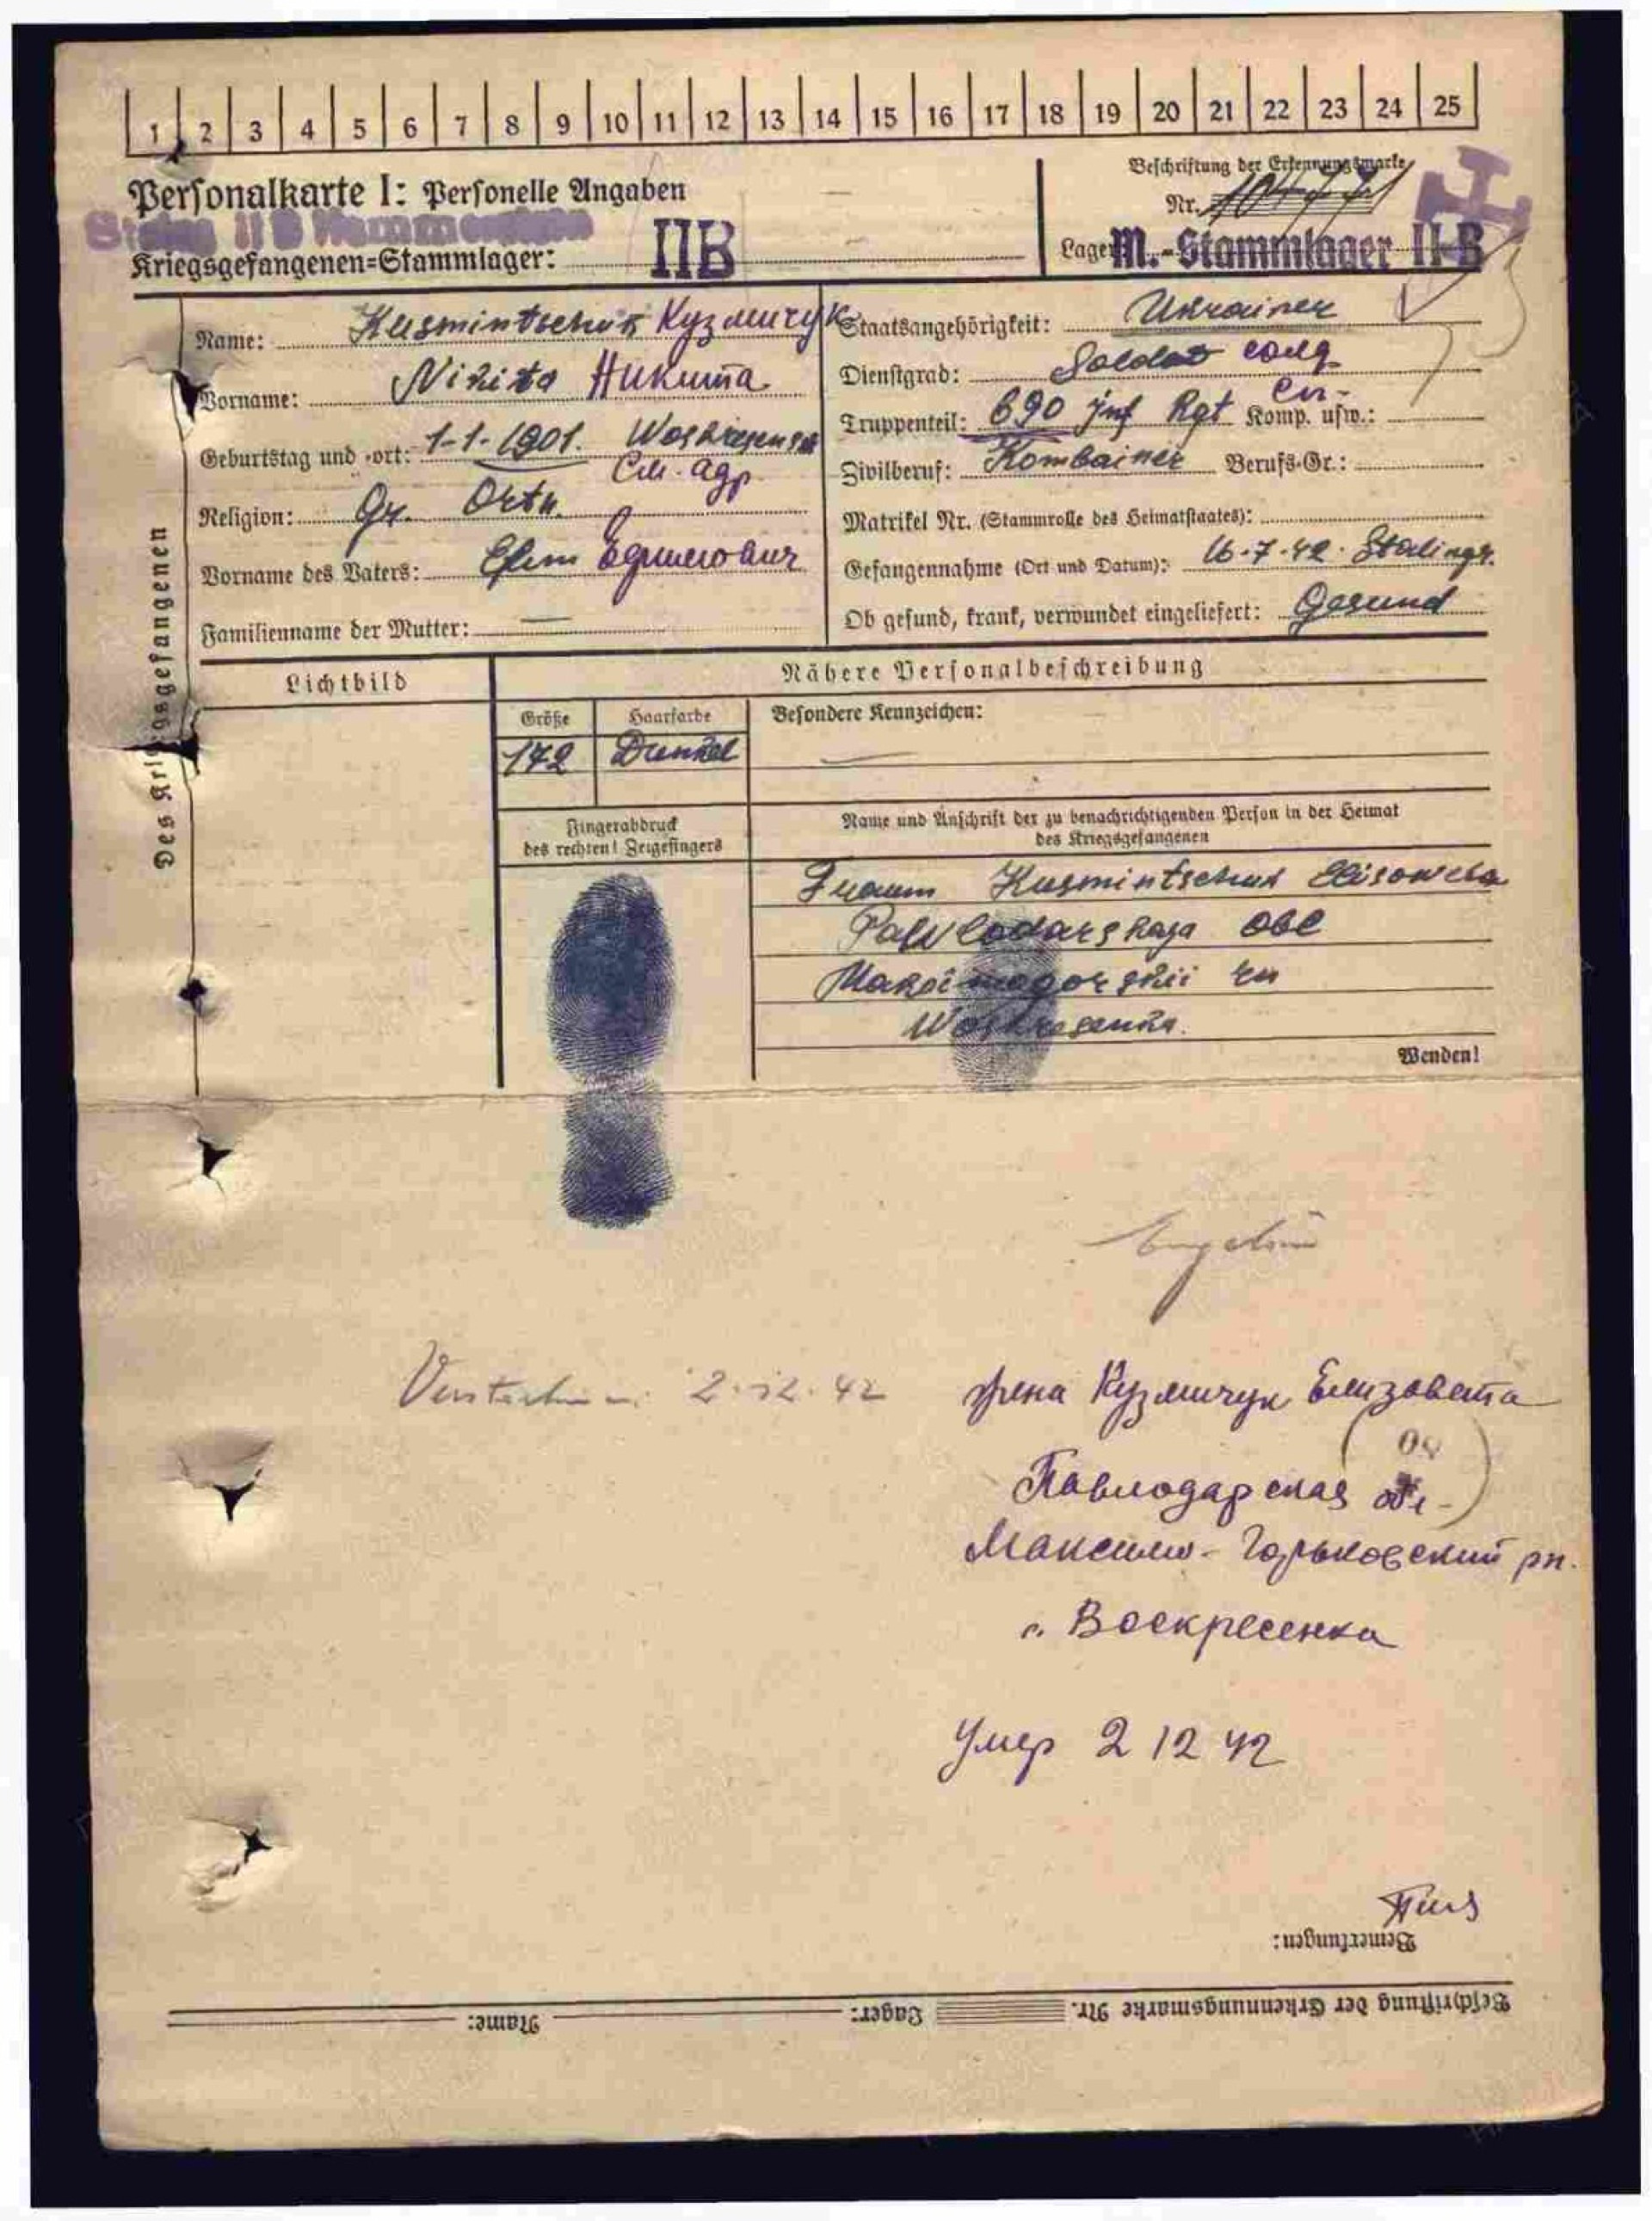 1 2 3 4 5 6 7 8 9 10 11 12 13 14 15 16 17 18 19 20 21 22 23 24 25
Personalkarte I: Personelle Angaben
Beschriftung der Erkennungsmarke
Nr.
Kriegsgefangenen-Stammlager: IIB
Lager: M.-Stammlager II-B
Des Kriegsgefangenen
Name: Kusmintschuk Кузмичук
Vorname: Nikita Никита
Geburtstag und -ort: 1-1-1901. Woskresensk
См. адр.
Religion: Gr. Orth.
Vorname des Vaters: Efim Ефимович
Familienname der Mutter: —
Staatsangehörigkeit: Ukrainer
Dienstgrad: Soldat солд
Truppenteil: 690 Inf Rgt Komp. usw.:
Zivilberuf: Kombainer Berufs-Gr.:
Matrikel Nr. (Stammrolle des Heimatstaates):
Gefangennahme (Ort und Datum): 16-7-42. Stalingr.
Ob gesund, krank, verwundet eingeliefert: Gesund
Lichtbild
Nähere Personalbeschreibung
Größe Haarfarbe Besondere Kennzeichen:
172 Dunkel —
Fingerabdruck
des rechten! Zeigefingers
Name und Anschrift der zu benachrichtigenden Person in der Heimat
des Kriegsgefangenen
Kusmintschuk Elisoweta
Pawlodarskaja Obl
Maksimogorskii
Woskresenka.
Wenden!
2.12.42
жена Кузмичук Елизовета
Павлодарская обл-
Максимо-Горьковский рн.
с. Воскресенка
Умер 2 12 42
Bemerkungen:
Beschriftung der Erkennungsmarke Nr. Lager: Name: